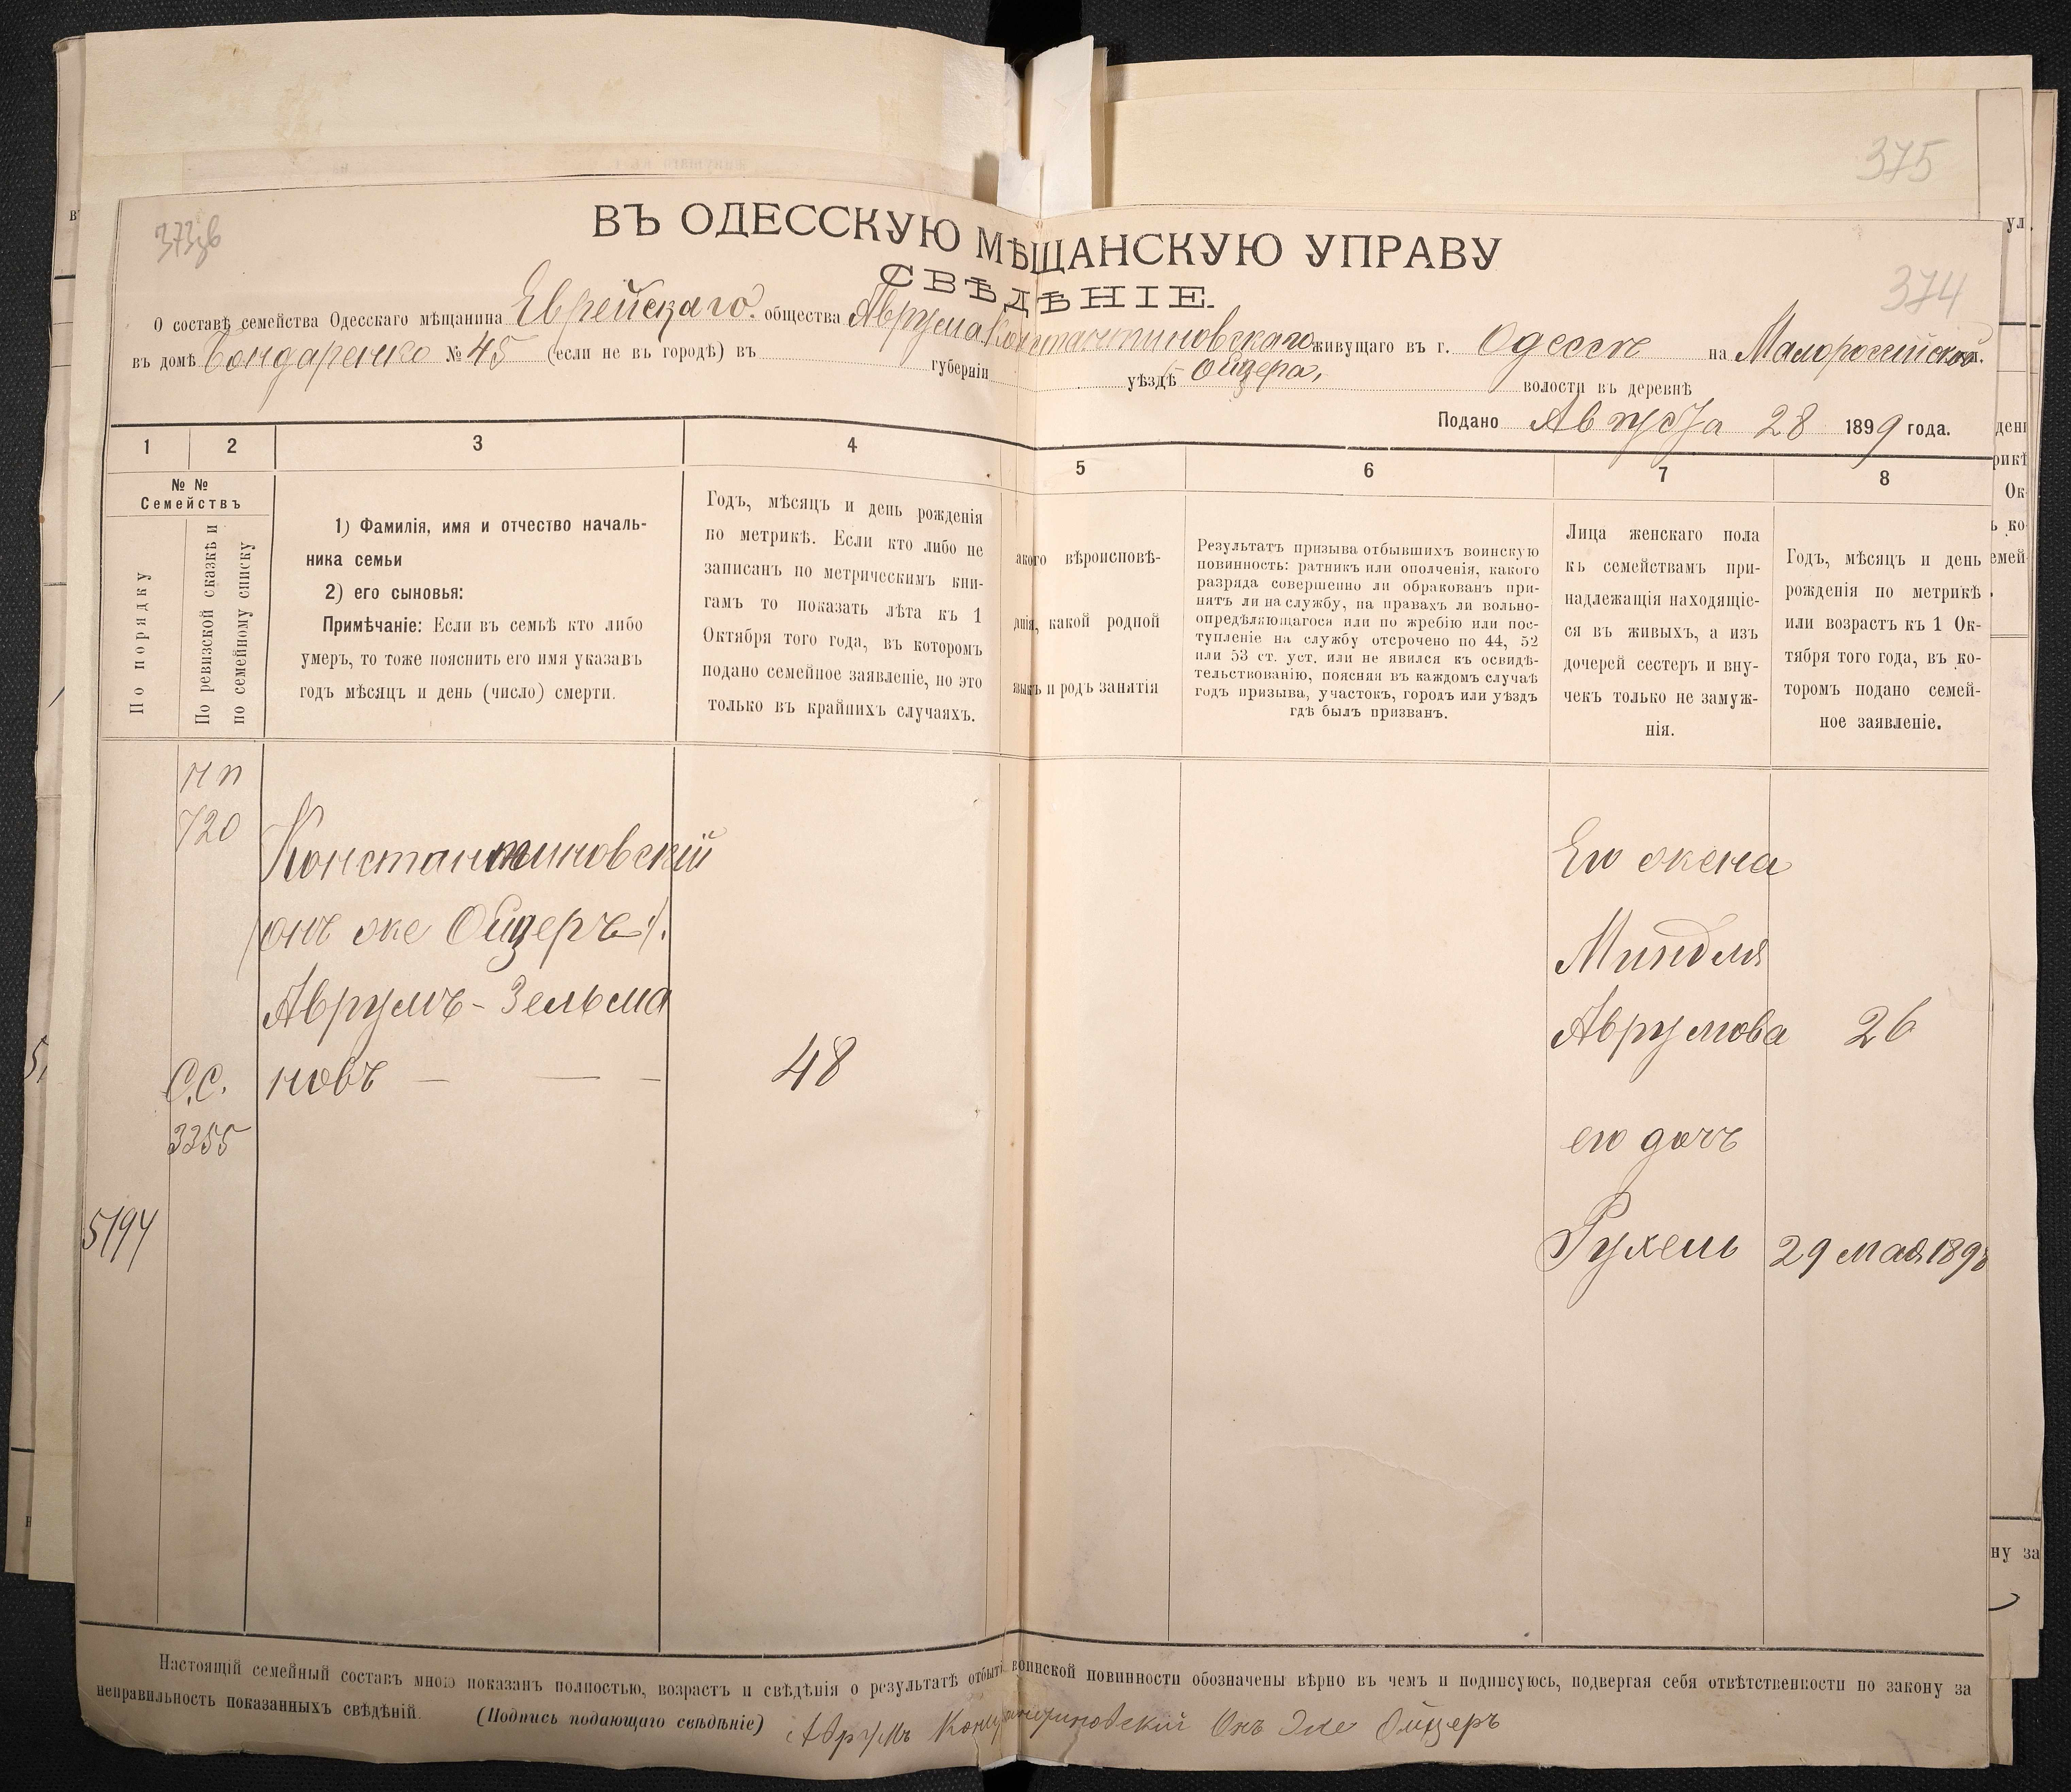 375
373зв
374
ВЪ ОДЕССКУЮ МѢЩАНСКУЮ УПРАВУ
СВѢДѢНІЕ.
О составѣ семейства Одесскаго мѣщанина Еврейскаго общества Аврума Константиновскаго живущаго въ г. Одессѣ на Малороссійской ул.
въ домѣ Бондаренко № 45 (если не въ городѣ) въ губерніи уѣздѣ Ойцера, волости въ деревнѣ
Подано Августа 28 1899 года.
1 2 3 4 5 6 7 8
№ №
Семействъ
По порядку
По ревизской сказкѣ и
по семейному списку
1) Фамилія, имя и отчество началь-
ника семьи
2) его сыновья:
Примѣчаніе: Если въ семьѣ кто либо
умеръ, то тоже пояснить его имя указавъ
годъ мѣсяцъ и день (число) смерти.
Годъ, мѣсяцъ и день рожденія
по метрикѣ. Если кто либо не
записанъ по метрическимъ кни-
гамъ то показать лѣта къ 1
Октября того года, въ которомъ
подано семейное заявленіе, но это
только въ крайнихъ случаяхъ.
акого вѣроисповѣ-
данія, какой родной
языкъ и родъ занятія
Результатъ призыва отбывшихъ воинскую
повинность: ратникъ или ополченія, какого
разряда совершенно ли обракованъ при-
нятъ ли на службу, на правахъ ли вольно-
опредѣляющагося или по жребію или пос-
тупленіе на службу отсрочено по 44, 52
или 53 ст. уст. или не явился къ освидѣ-
тельствованію, поясняя въ каждомъ случаѣ
годъ призыва, участокъ, городъ или уѣздъ
гдѣ былъ призванъ.
Лица женскаго пола
къ семействамъ при-
надлежащія находящіе-
ся въ живыхъ, а изъ
дочерей сестеръ и вну-
чекъ только не замуж-
нія.
Годъ, мѣсяцъ и день
рожденія по метрикѣ
или возрастъ къ 1 Ок-
тября того года, въ ко-
торомъ подано семей-
ное заявленіе.
нп
720
Константиновскій
(онъ же Ойцеръ).
Аврумъ - Зельма
новъ — — —
48
С.С.
3355
5194
Его жена
Миндля
Аврумова 26
его дочь
Рухель 29 мая 1898
Настоящій семейный составъ мною показанъ полностью, возрастъ и свѣдѣнія о результатѣ отбыті воинской повинности обозначены вѣрно въ чемъ и подписуюсь, подвергая себя отвѣтственности по закону за
неправильность показанныхъ свѣдѣній. (Подпись подающаго свѣдѣніе) Аврумъ Константиновскій Онъ Же Ойцеръ